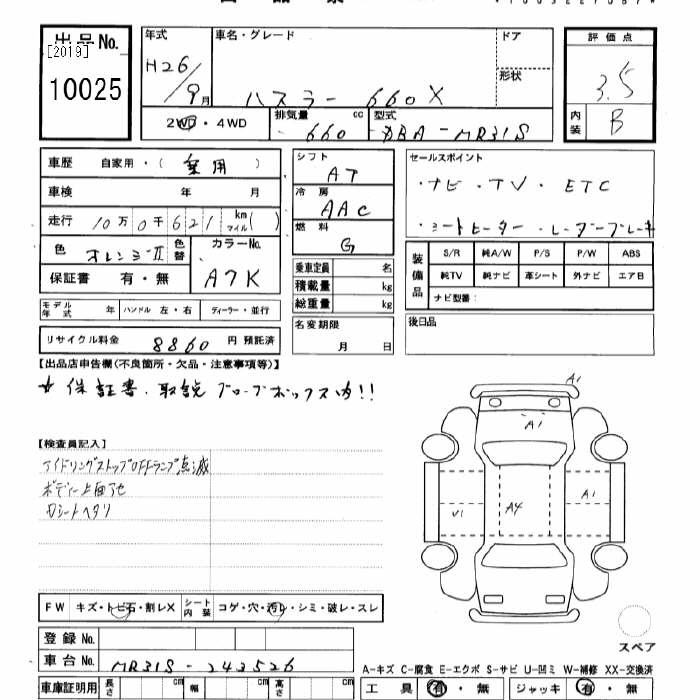 出品No.
[2019]
10025
年式
H26/9月
車名・グレード
ハスラー 660 X
ドア
形状
評価点
3.5
内装
B
2WD・4WD
排気量
660 cc
型式
DBA-MR31S
車歴 自家用・(乗用)
車検 年 月
走行 10万0千621 km マイル( )
色 オレンジII 色替
カラーNo.
A7K
保証書 有・無
シフト
AT
冷房
AAC
燃料
G
乗車定員 名
積載量 kg
総重量 kg
セールスポイント
・ナビ・TV・ETC
・シートヒーター・レーダーブレーキ
装備品
S/R 純A/W P/S P/W ABS
純TV 純ナビ 革シート 外ナビ エアB
ナビ型番:
モデル年式 年 ハンドル 左・右 ディーラー・並行
リサイクル料金 8860 円 預託済
名変期限
月 日
後日品
【出品店申告欄(不良箇所・欠品・注意事項等)】
☆保証書、取説 グローブボックス内!!
【検査員記入】
アイドリングストップOFFランプ点滅
ボディー上面アセ
Dシートヘタリ
A1
A1
A1
U1
A4
FW キズ・トビ石・割レX
シート内装 コゲ・穴・汚レ・シミ・破レ・スレ
登録No.
車台No. MR31S-243526
スペア
A-キズ C-腐食 E-エクボ S-サビ U-凹ミ W-補修 XX-交換済
車庫証明用 長さ cm 幅 cm 高さ cm
工具 有・無 ジャッキ 有・無